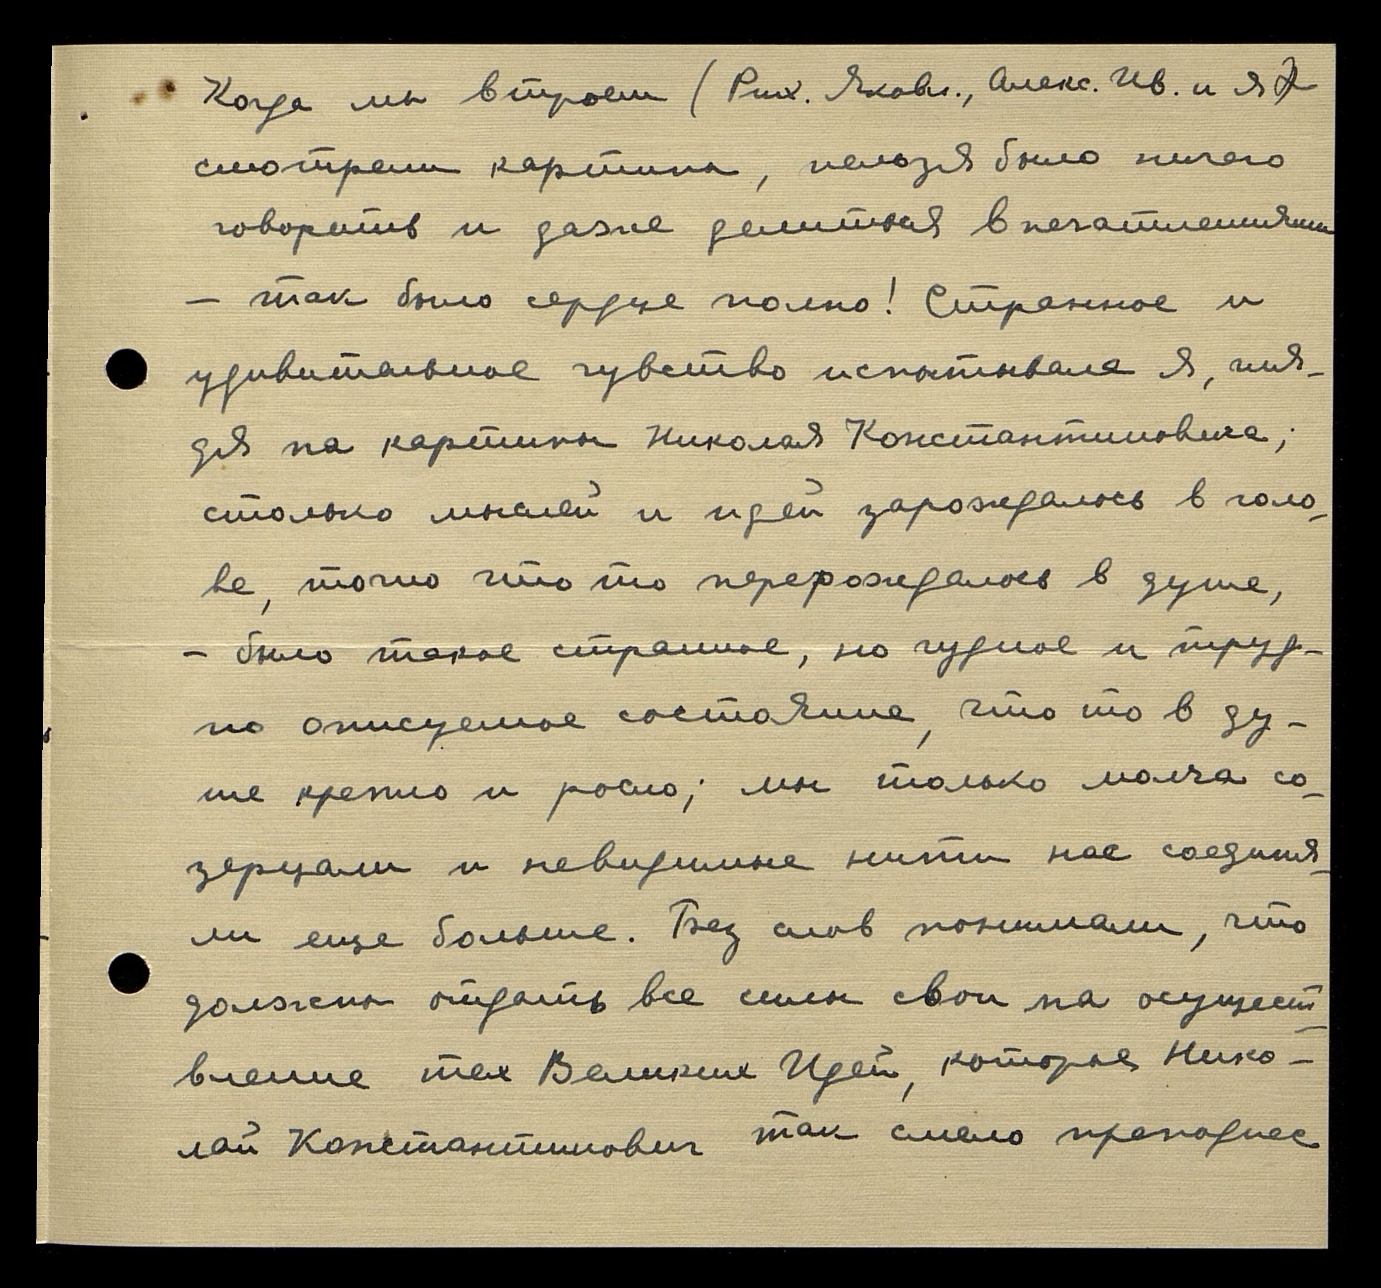 Когда мы втроем (Рих. Яковл., Алекс. Ив. и я)
смотрели картины, нельзя было ничего
говорить и даже делиться впечатлениями
– так было сердце полно! Странное и
удивительное чувство испытывала я, гля-
дя на картины Николая Константиновича;
столько мыслей и идей зарождалось в голо-
ве, точно что то перерождалось в душе,
– было такое странное, но чудное и труд-
но описуемое состояние, что то в ду-
ше крепло и росло; мы только молча со-
зерцали и невидимые нити нас соединя-
ли еще больше. Без слов понимали, что
должны отдать все силы свои на осущест-
вление тех Великих Идей, которые Нико-
лай Константинович так смело преподнес